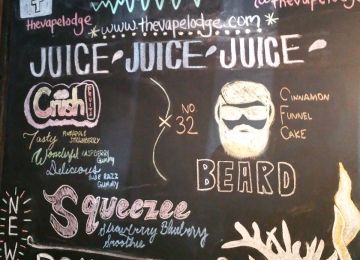 thevapelodge
www.thevapelodge.com
@thevapelodge
JUICE JUICE JUICE
Crush
FRUITS
Tasty PINEAPPLE STRAWBERRY
Wonderful RASPBERRY Gummy
Delicious BLUE RAZZ Gummy
NO. 32
BEARD
CINNAMON
FUNNEL
CAKE
NEW
Squeezee
Strawberry Blueberry
Smoothie